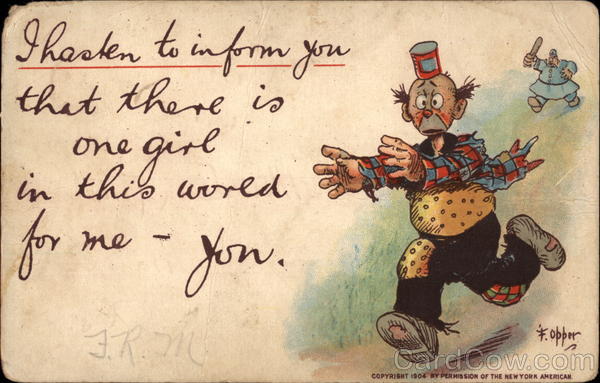 I hasten to inform you
that there is
one girl
in this world
for me - you.
F. Opper
F.R.M
COPYRIGHT 1904 BY PERMISSION OF THE NEW YORK AMERICAN.
CardCow.com